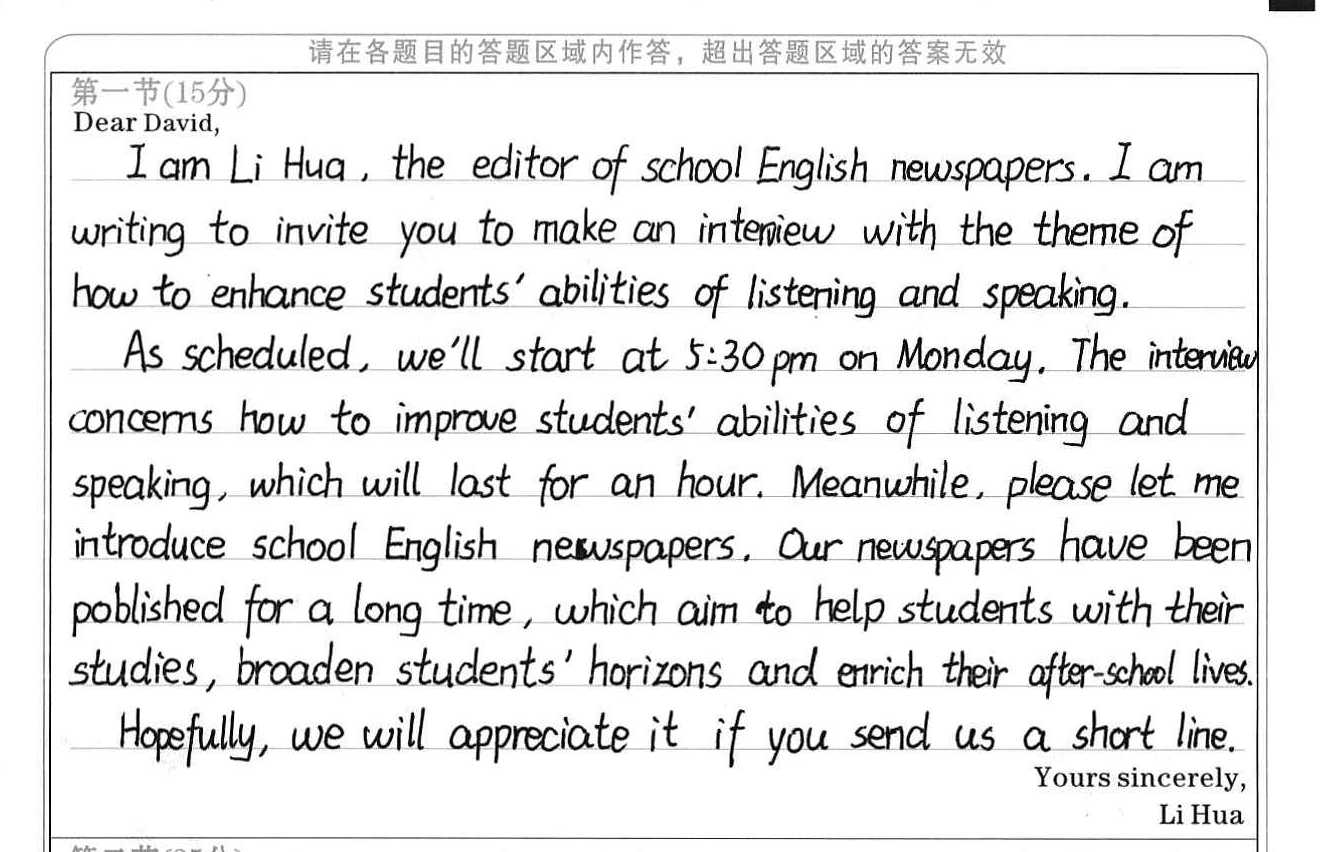 请在各题目的答题区域内作答，超出答题区域的答案无效
第一节(15分)
Dear David,
I am Li Hua, the editor of school English newspapers. I am
writing to invite you to make an interview with the theme of
how to enhance students' abilities of listening and speaking.
As scheduled, we'll start at 5:30 pm on Monday. The interview
concerns how to improve students' abilities of listening and
speaking, which will last for an hour. Meanwhile, please let me
introduce school English newspapers. Our newspapers have been
poblished for a long time, which aim to help students with their
studies, broaden students' horizons and enrich their after-school lives.
Hopefully, we will appreciate it if you send us a short line.
Yours sincerely,
Li Hua